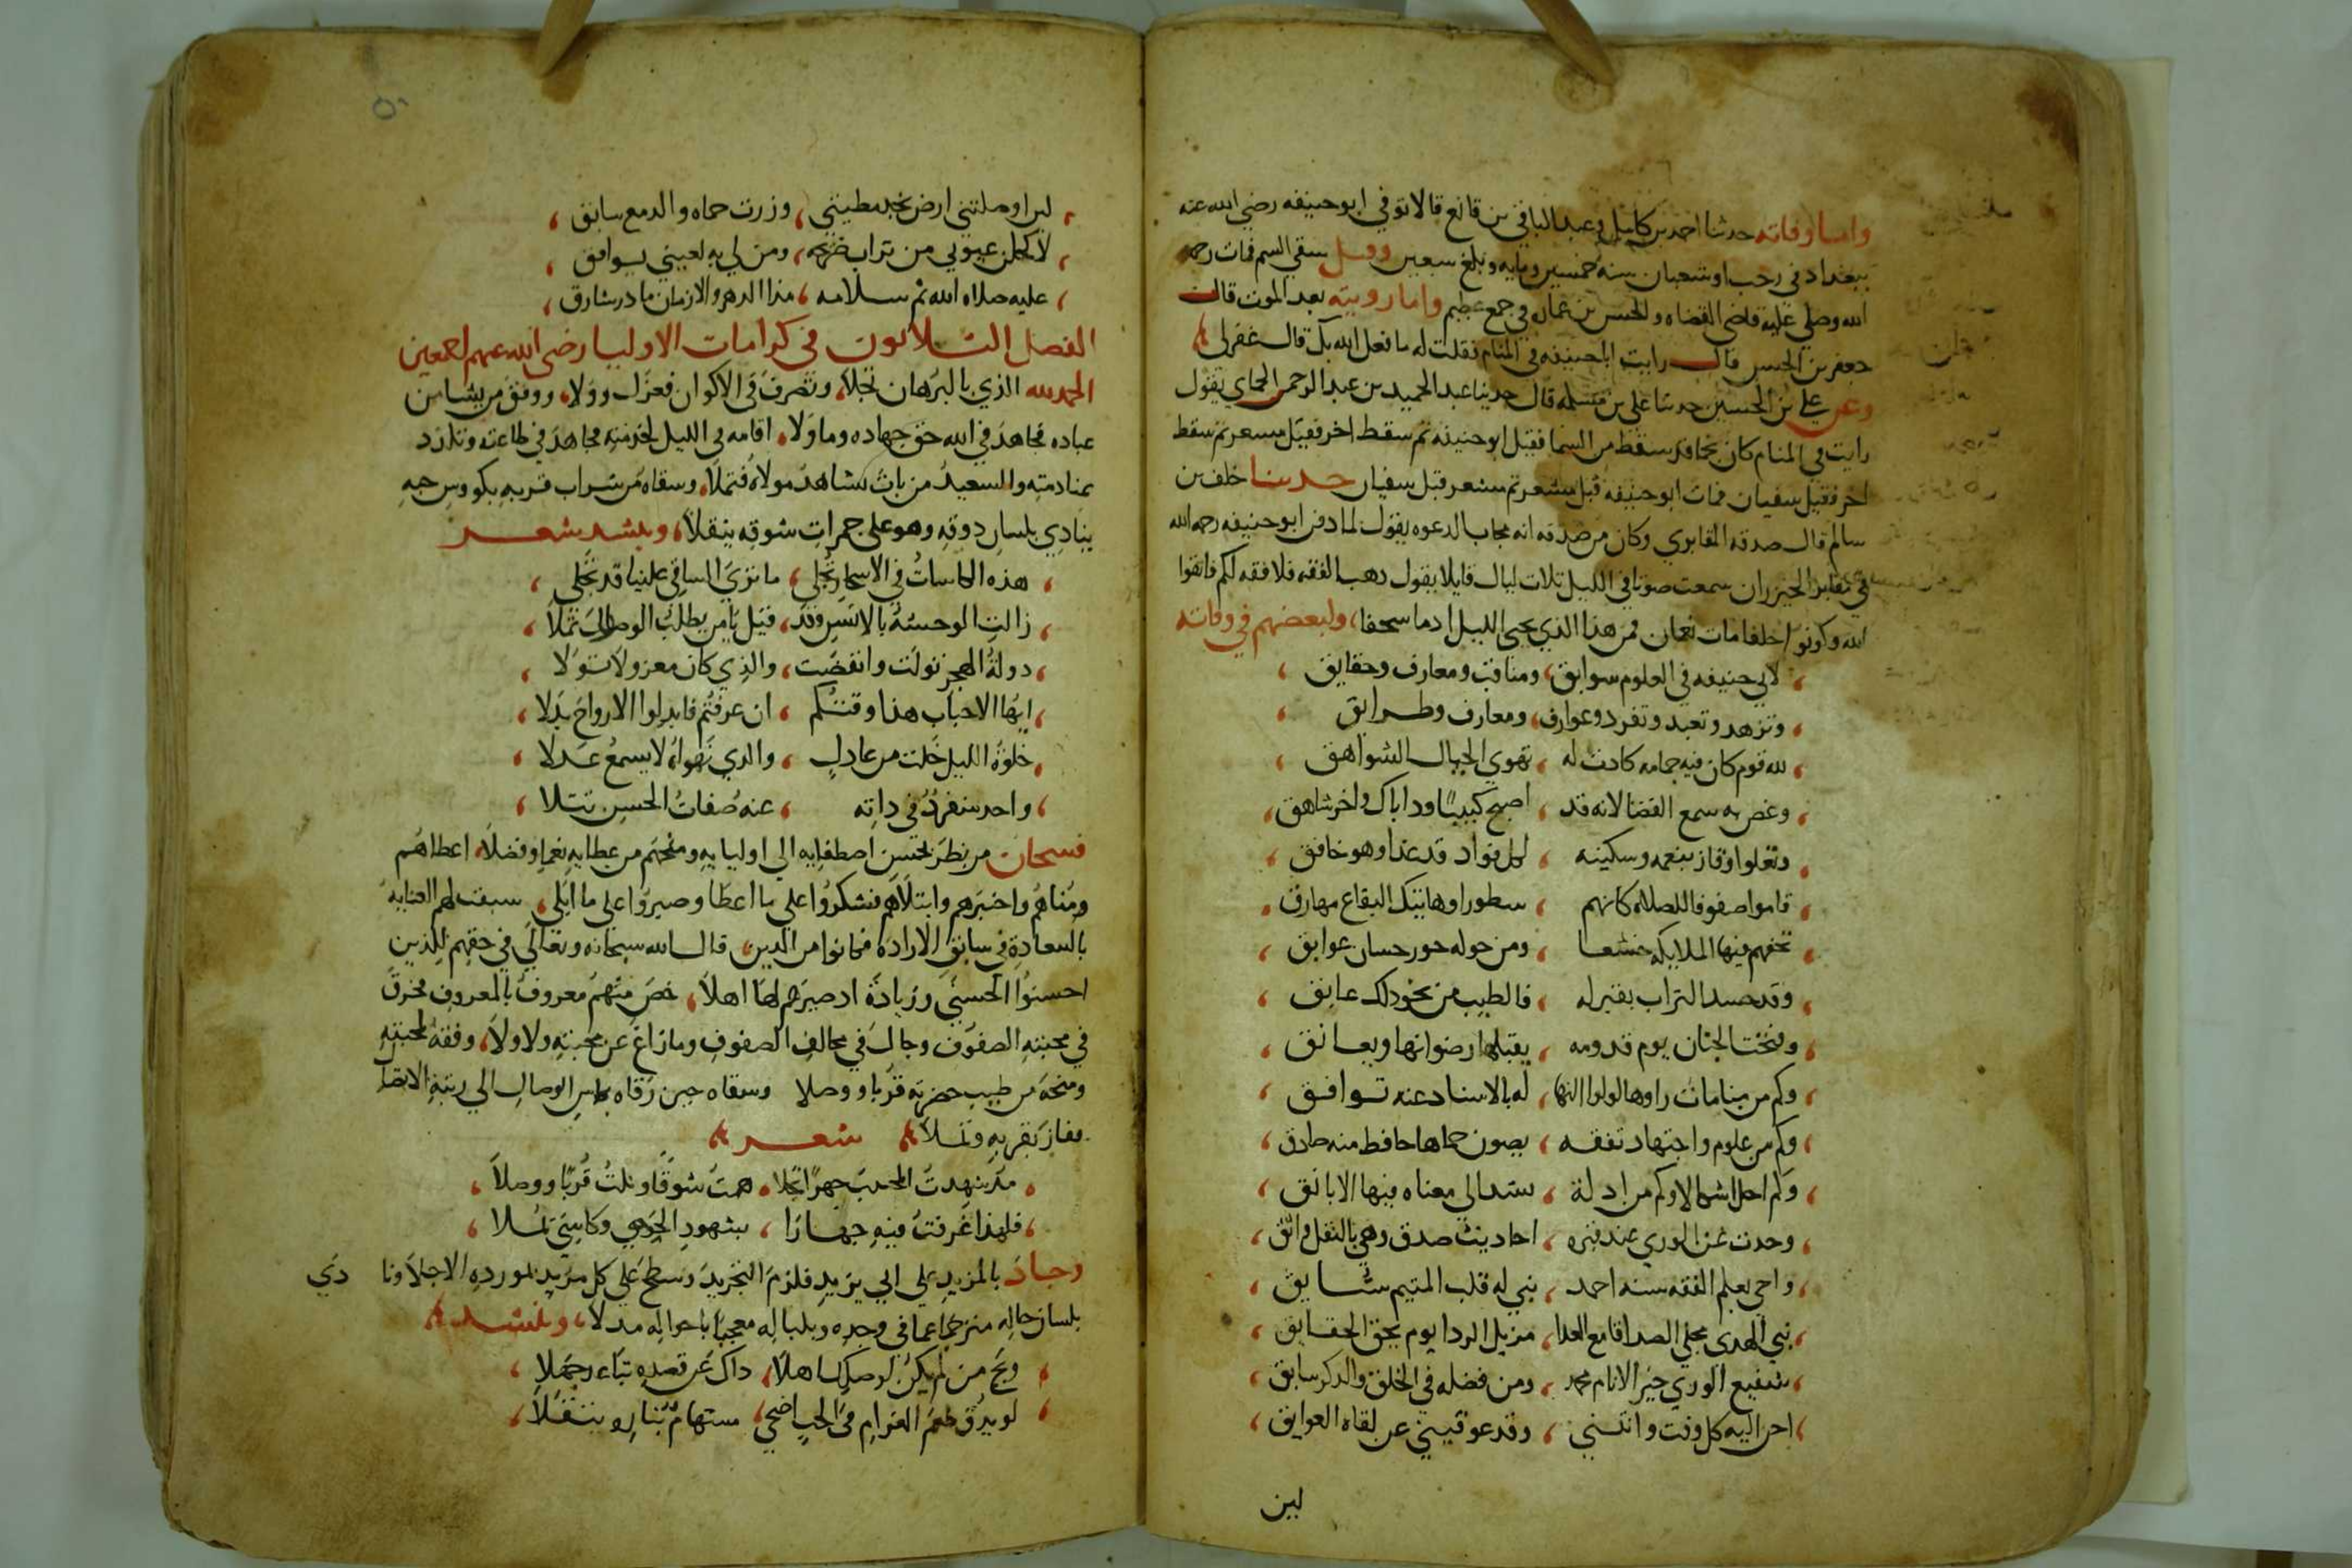 واما وفاته حدثنا احمد بن كامل وعبد الباقي بن قانع قالا توفي ابو حنيفه رضي الله عنه
ببغداد في رجب او شعبان سنه خمسين ومايه وبلغ سبعين وقيل سقي السم فمات رحمه
الله وصلي عليه قاضي القضاه والحسن بن عماره في جمع عظيم واما رويته بعد الموت قال
جعفر بن الحسن قال رايت ابا حنيفه في المنام فقلت له ما فعل الله بك قال غفر لي
وعن علي بن الحسين حدثنا علي بن مسلمه قال حدثنا عبد الحميد بن عبد الرحمن الحماي يقول
رايت في المنام كان نجما قد سقط من السما فقيل ابو حنيفه ثم سقط اخر فقيل مسعر ثم سقط
اخر فقيل سفيان فمات ابو حنيفه قبل مسعر ثم مسعر قبل سفيان حدثنا خلف بن
سالم قال صدقه المقابري وكان من صدقه انه مجاب الدعوه يقول لما دفن ابو حنيفه رحمه الله
في مقابر الخيزران سمعت صوتا في الليل ثلاث ليال قايلا يقول ذهب الفقه فلا فقه لكم فاتقوا
الله وكونوا خلفا مات نعمان فمن هذا الذي يحيي الليل اذا ما سجفا ولبعضهم في وفاته
لابي حنيفه في العلوم سوابق ومناقب ومعارف وحقايق
وتزهد وتعبد وتفرد وعوارف ومعارف وطرايق
لله قوم كان فيه حمامه كادت له تهوي الجبال الشواهق
وغص به سمع الفضا لانه قد اصبح كييبا وذا باك واخر شاهق
وتعلوا وقار بنعمه وسكينه لكل فواد قد غدا وهو خافق
قاموا صفوفا للصلاه كانهم سطورا وهاتيك البقاع مهارق
تحفهم فيها الملايكه خشعا ومن حوله حور حسان عوابق
وقد حسد التراب بقبر له فالطيب من نحو ذلك عابق
وفتحت الجنان يوم قدومه يقبلها رضوانها ويعانق
وكم من منامات راوها لولوا النها له بالاسناد عنه توافق
وكم من علوم واجتهاد تفقه يصون حماها حافظ منه صادق
وكم احل اشكالا وكم من ادلة ستدا لي معناه فيها الايانق
وحدث عن الوري عند قبره احاديث صدق وهي بالنقل واثق
واحي بعلم الفقه سنه احمد نبي له قلب المتيم شايق
نبي الهدى مجلي الصدا قامع العدا مزيل الردا يوم تحق الحقايق
شفيع الوري خير الانام محمد ومن فضله في الخلق والذكر سابق
احن اليه كل وقت وانثني وقد عوقيني عن لقاه العوايق
لين
لين اوصلتني ارض نجد مطيتي وزرت حماه والدمع سابق
لاكحلن عيوني من تراب ضريحه ومن لي به لعيني يوافق
عليه صلاه الله ثم سلامه مدا الدهر والازمان ما در شارق
الفصل الثلاثون في كرامات الاوليا رضي الله عنهم اجمعين
الحمد لله الذي بالبرهان تجلا وتصرف في الاكوان فعزل وولا ووفق من يشا من
عباده فجاهد في الله حق جهاده وما ولا اقامه في الليل لخدمته فجاهد في طاعته وتلذذ
بمنادمته والسعيد من بات يشاهد مولاه فتملا وسقاه من شراب قربه بكووس حبه
ينادي بلسان ذوقه وهو على جمرات شوقه يتقلا وينشد شعر
هذه الكاسات في الاسحار تجلي ما تري الساقي علينا قد تجلي
زالت الوحشه بالانس وقد قيل يا من يطلب الوصال تملا
دولة الهجر تولت وانقضت والذي كان معزولا تولا
ايها الاحباب هذا وقتكم ان عرفتم فابدلوا الارواح بذلا
خلوة الليل خلت من عاذل والذي نهواه لا يسمع عذلا
واحد منفرد في ذاته عنه صفات الحسن تتلا
فسبحان من نظر بحسن اصطفايه الي اوليايه ومنحهم من عطايه نعما وفضلا اعطاهم
ومناهم واختبرهم وابتلاهم فشكروا على ما اعطا وصبروا على ما ابلي سبقت لهم العنايه
بالسعادة في سابق الارادة فكانوا من الدين قال الله سبحانه وتعالي في حقهم للذين
احسنوا الحسني وزيادة اذ صيرهم لها اهلا خص منهم معروف بالمعروف فخرق
في محبته الصفوف وجال في مخالف الصفوف وما زاغ عن محبته ولا ولا وفقه لمحبته
ومنحه من طيب حضرته قربا ووصلا وسقاه حين رقاه بكاس الوصال الي رتبة الاتصا
ففاز بقربه وتملا شعر
مذ شهدت المحب جهرا تجلا همت شوقا ونلت قربا ووصلا
فلهذا غرفت فيه جهارا بشهود الحبي وكاسي تملا
وجاد بالمزيد علي ابي يزيد فلزم التجريد وسطح علي كل مريد لمورده الاجلا ونا دي
بلسان حاله مترجما عما في وجده وبلباله معجبا باحواله مدلا وينشد
ويح من لم يكن لوصلك اهلا ذاك عن قصده تناء رجملا
لو يذق طعم الغرام في الحب اضحي مستهام بناره يتقلا